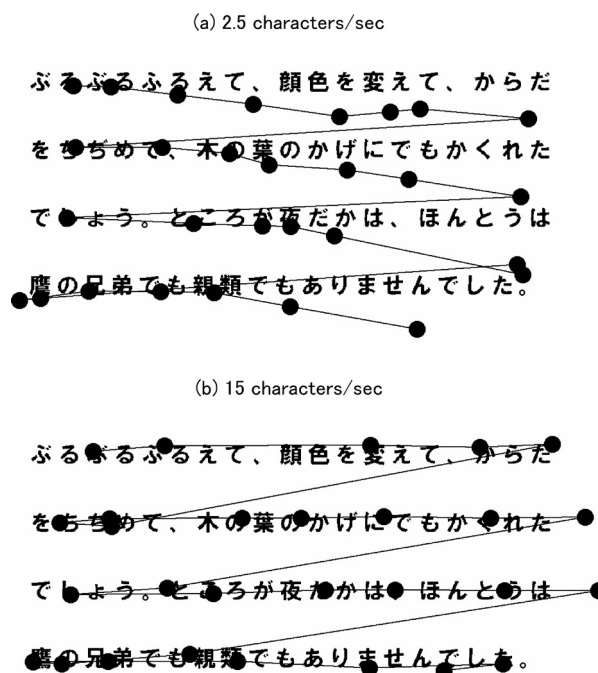 (a) 2.5 characters/sec
ぶるぶるふるえて、顔色を変えて、からだ
をちぢめて、木の葉のかげにでもかくれた
でしょう。ところが夜だかは、ほんとうは
鷹の兄弟でも親類でもありませんでした。
(b) 15 characters/sec
ぶるぶるふるえて、顔色を変えて、からだ
をちぢめて、木の葉のかげにでもかくれた
でしょう。ところが夜だかは、ほんとうは
鷹の兄弟でも親類でもありませんでした。